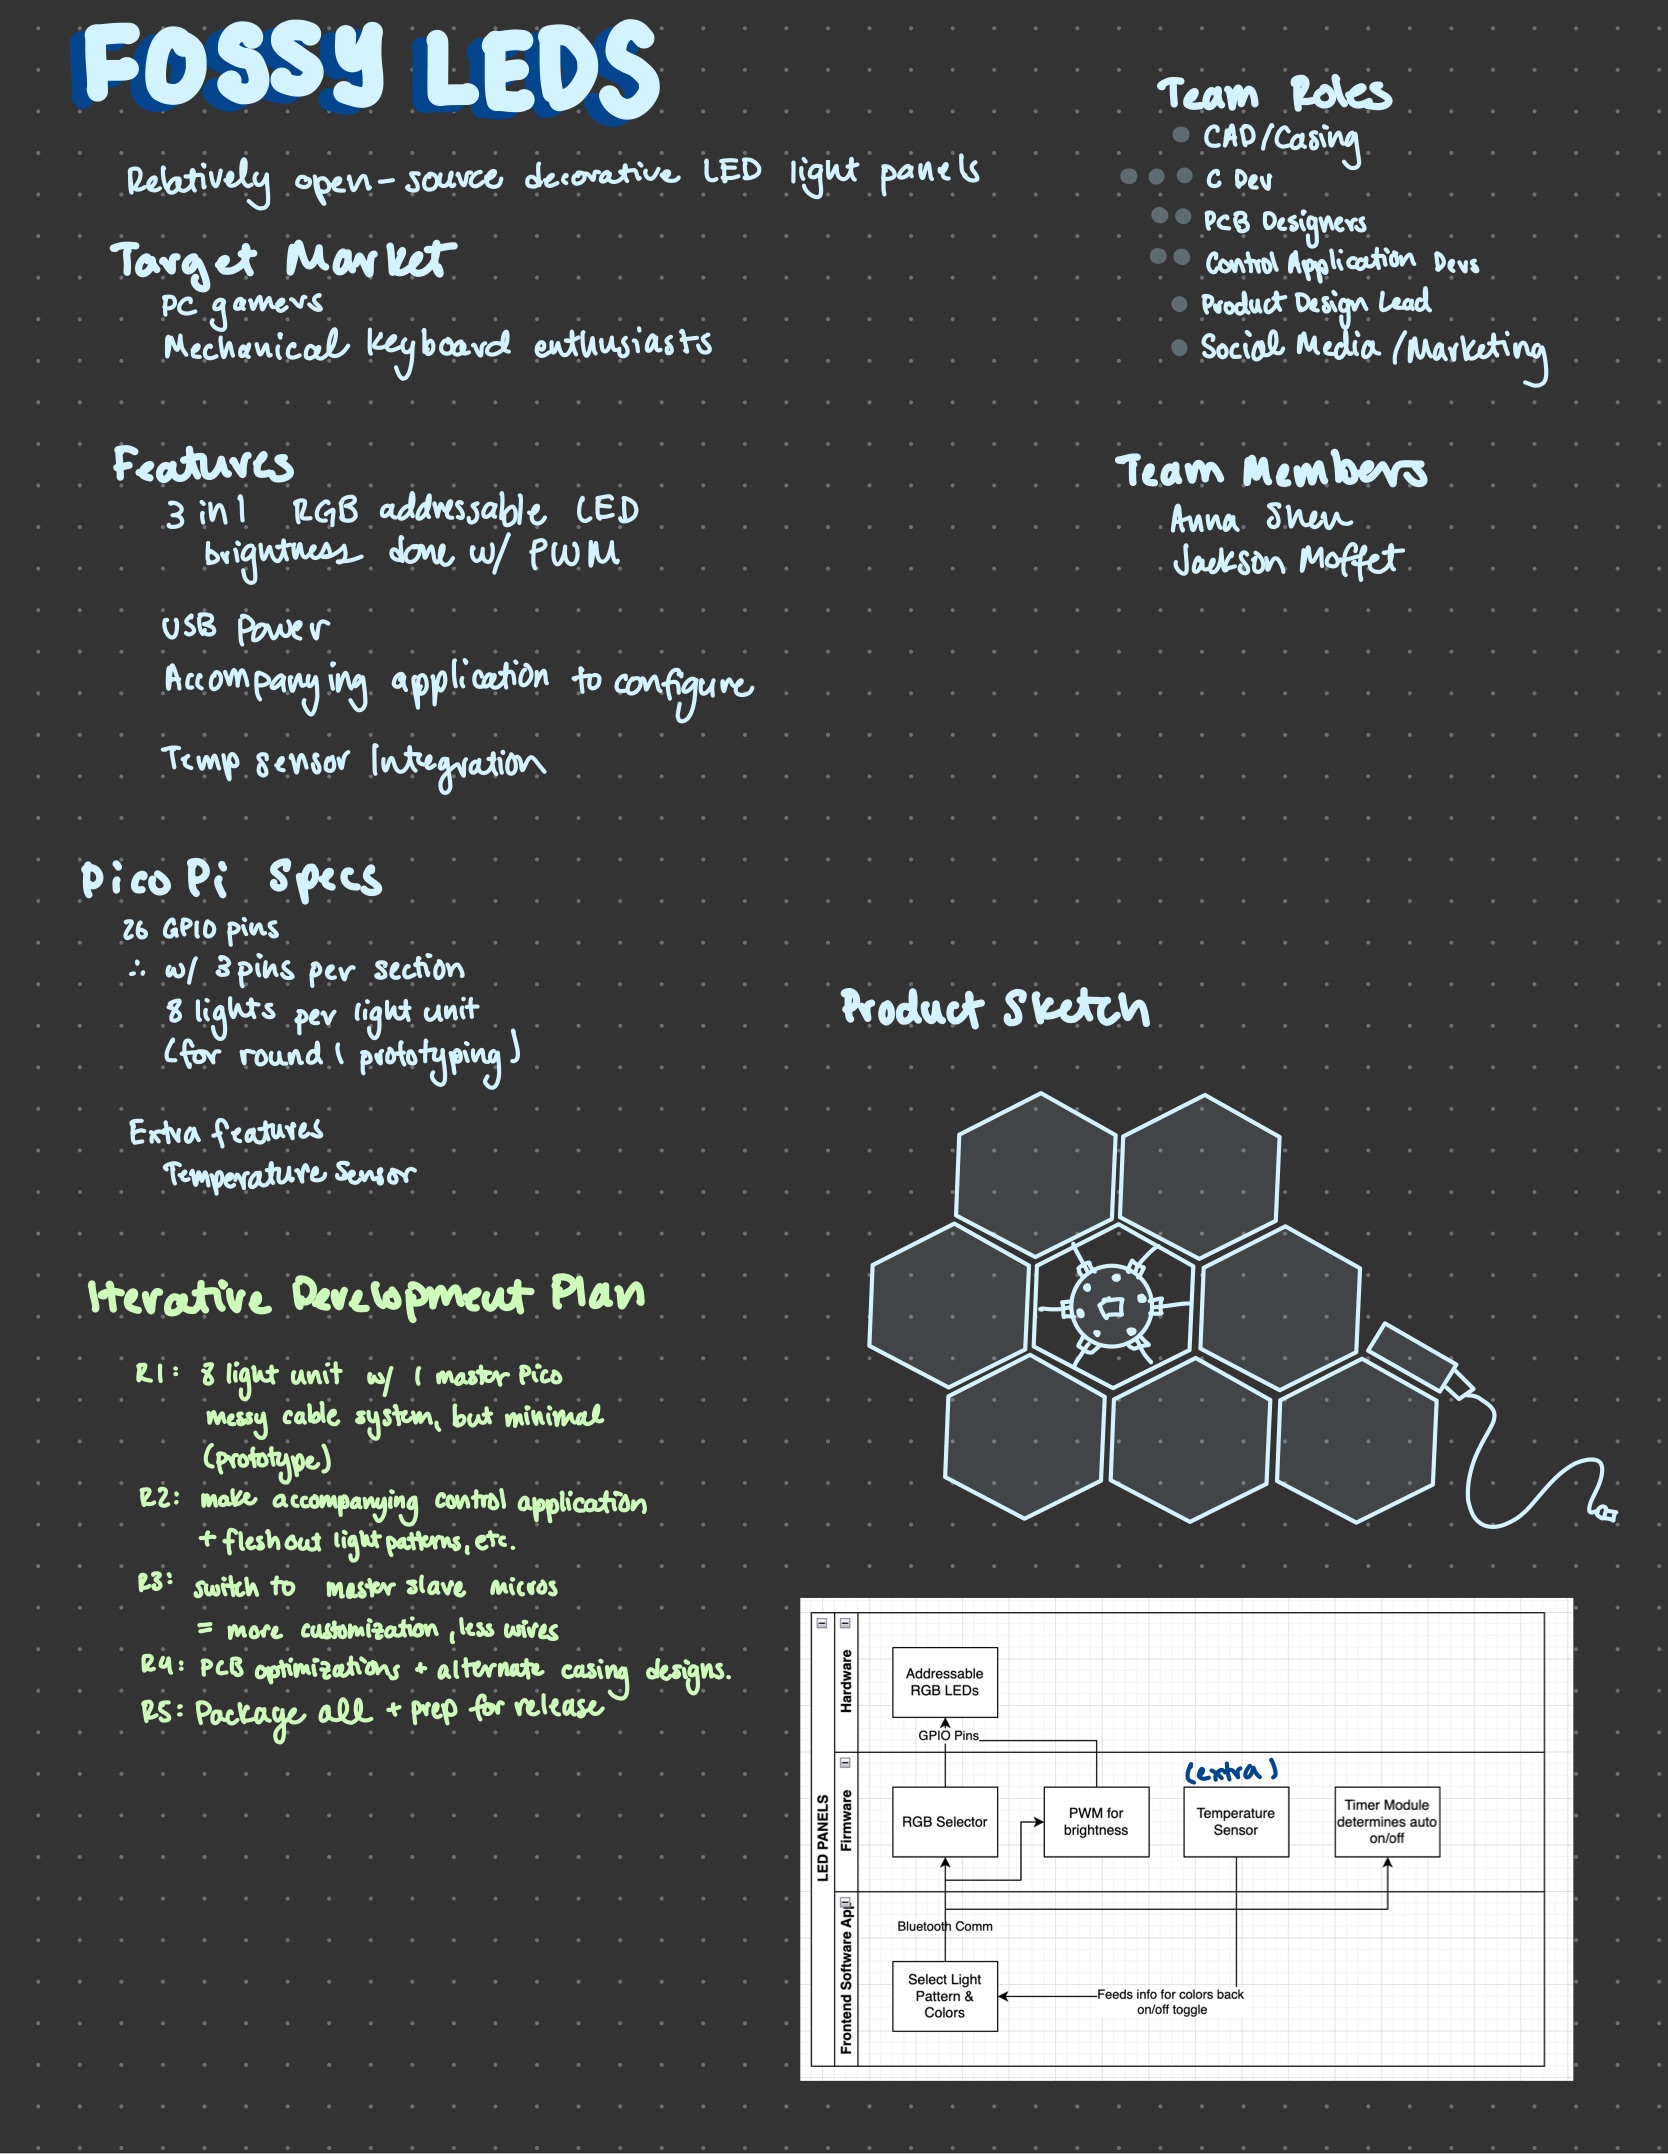 FOSSY LEDS
Relatively open-source decorative LED light panels
Target Market
PC gamers
Mechanical keyboard enthusiasts
Features
3 in 1 RGB addressable LED
brightness done w/ PWM
USB Power
Accompanying application to configure
Temp sensor Integration
Pico Pi Specs
26 GPIO pins
∴ w/ 3 pins per section
8 lights per light unit
(for round 1 prototyping)
Extra features
Temperature Sensor
Iterative Development Plan
R1: 8 light unit w/ 1 master Pico
messy cable system, but minimal
(prototype)
R2: make accompanying control application
+ flesh out light patterns, etc.
R3: switch to master slave micros
= more customization, less wires
R4: PCB optimizations + alternate casing designs.
R5: Package all + prep for release
Team Roles
CAD/Casing
C Dev
PCB Designers
Control Application Devs
Product Design Lead
Social Media/Marketing
Team Members
Anna Shen
Jackson Moffet
Product Sketch
LED PANELS
Hardware
Addressable
RGB LEDs
GPIO Pins
Firmware
RGB Selector
PWM for
brightness
(extra)
Temperature
Sensor
Timer Module
determines auto
on/off
Frontend Software App
Bluetooth Comm
Select Light
Pattern &
Colors
Feeds info for colors back
on/off toggle